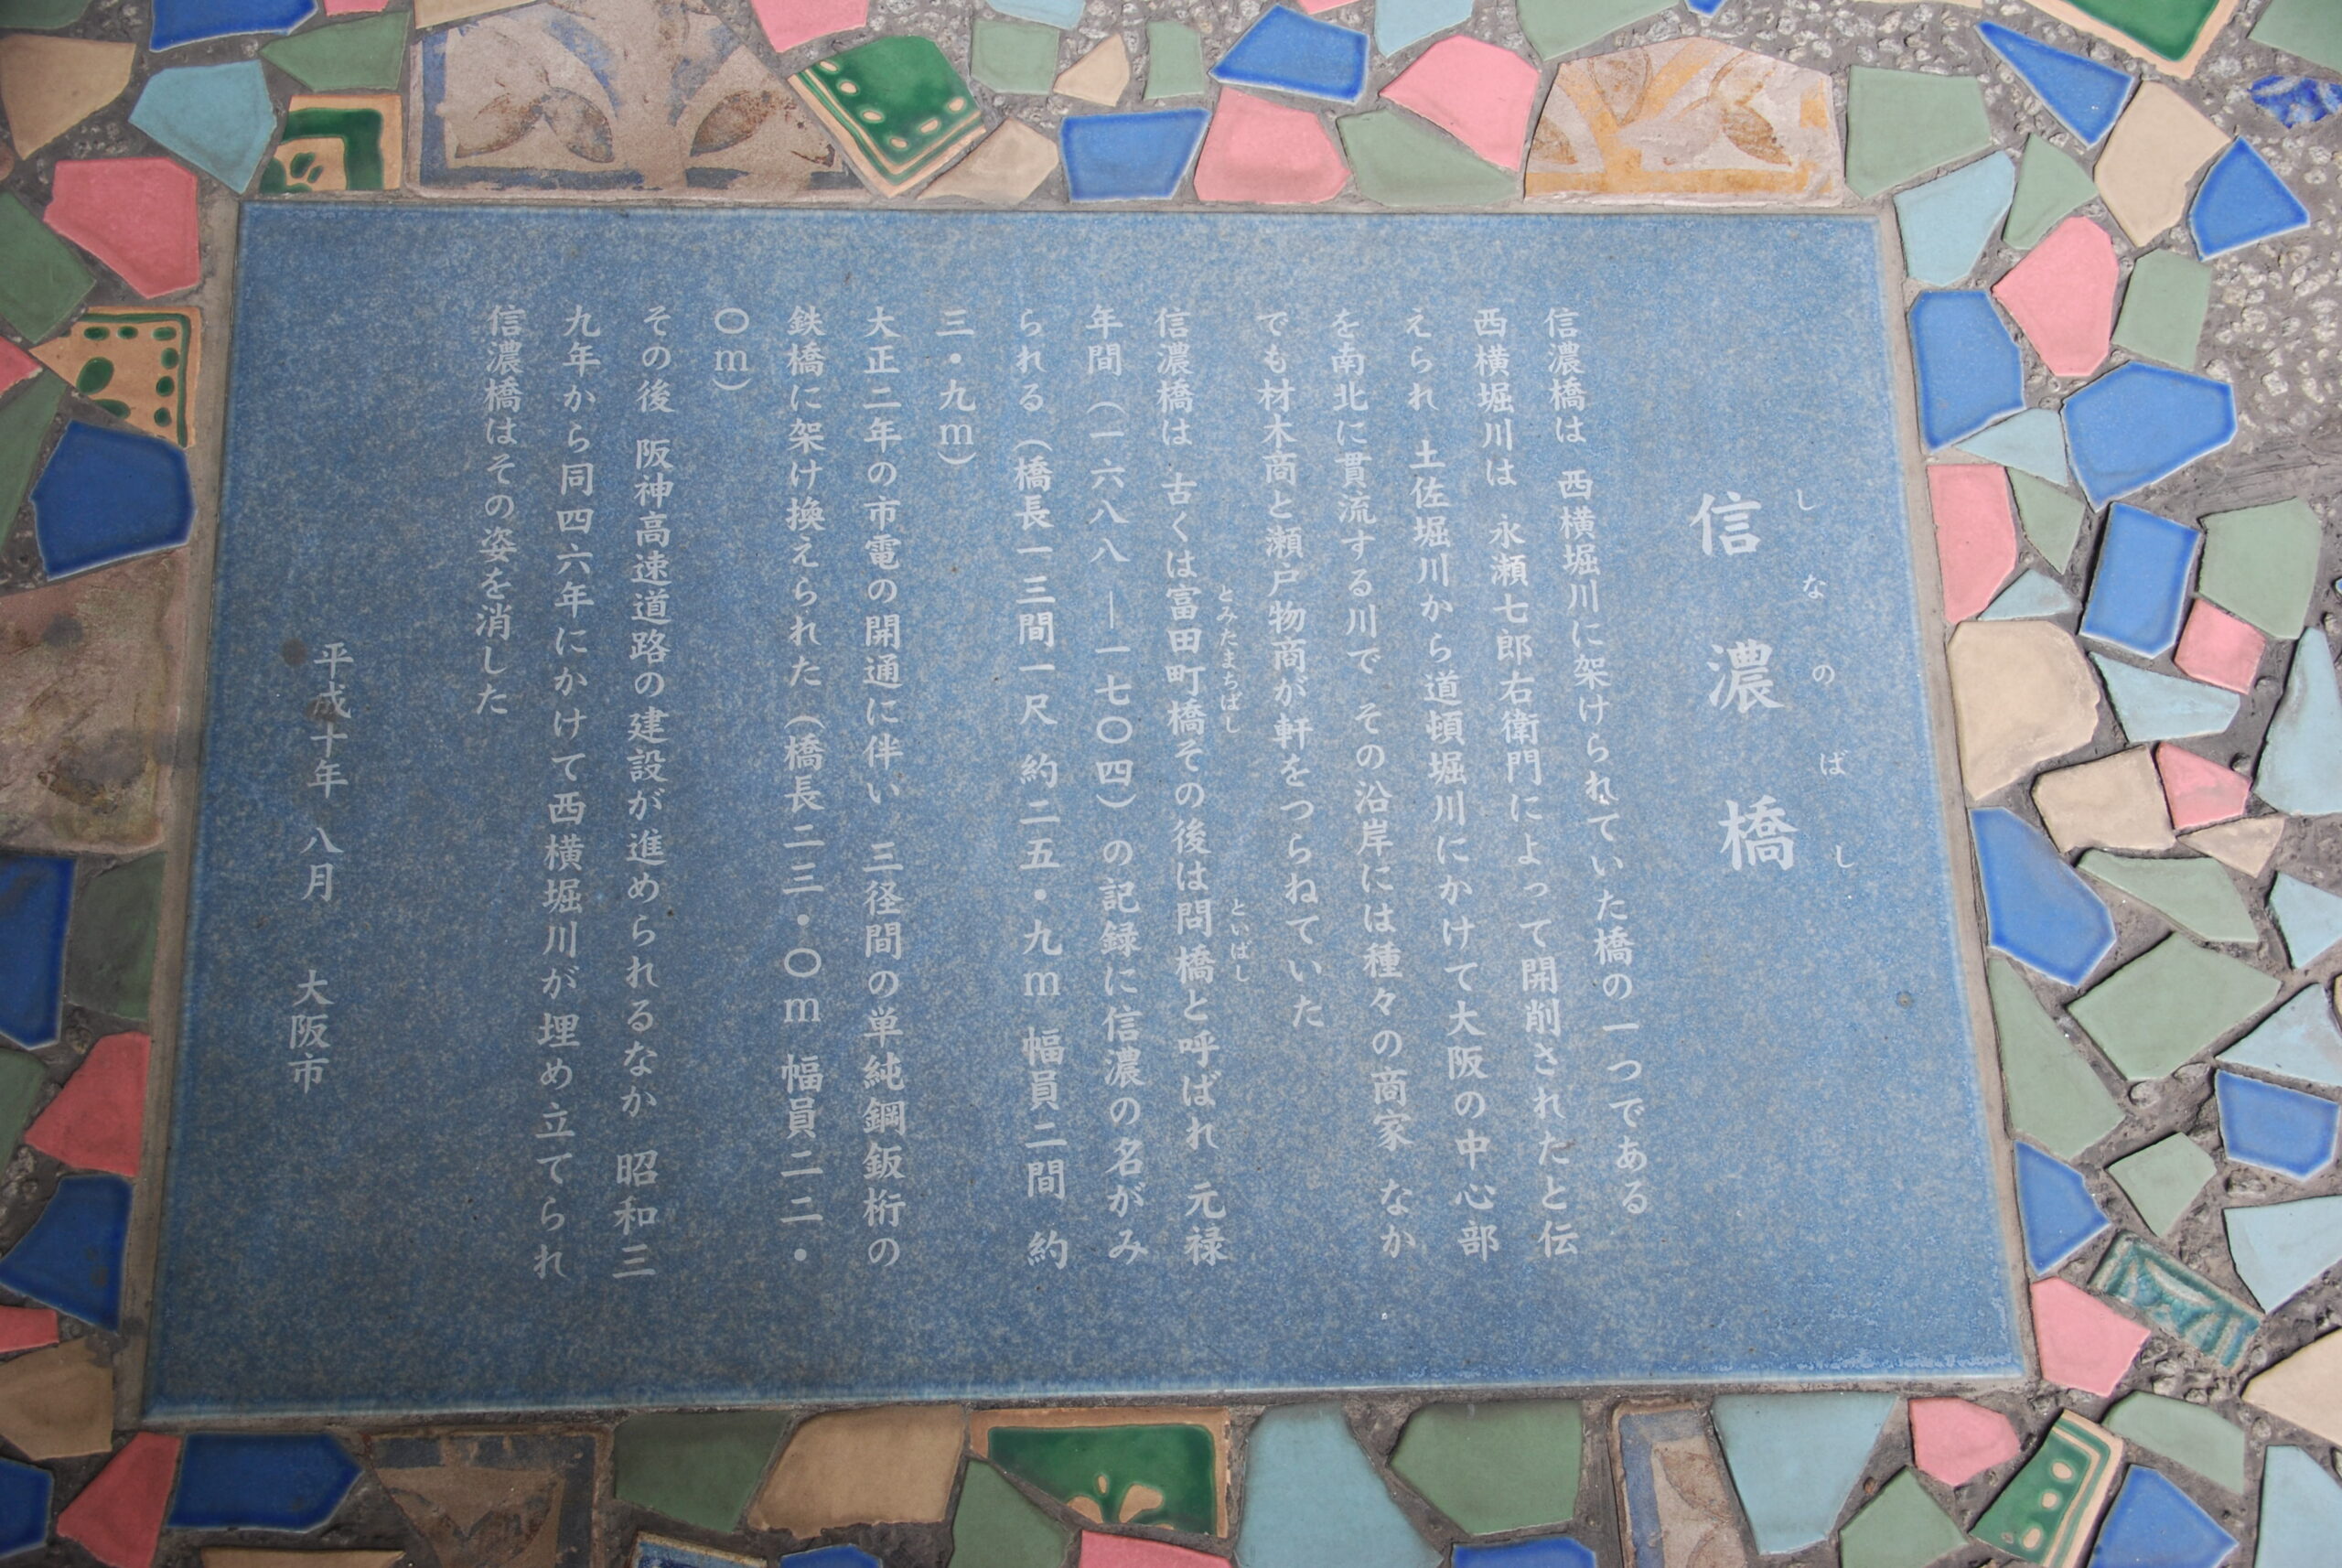 しなのばし
信濃橋
信濃橋は 西横堀川に架けられていた橋の一つである
西横堀川は 永瀬七郎右衛門によって開削されたと伝
えられ 土佐堀川から道頓堀川にかけて大阪の中心部
を南北に貫流する川で その沿岸には種々の商家 なか
でも材木商と瀬戸物商が軒をつらねていた
とみたまちばし といばし
信濃橋は 古くは富田町橋その後は問橋と呼ばれ 元禄
年間（一六八八―一七〇四）の記録に信濃の名がみ
られる（橋長一三間一尺 約二五・九m 幅員二間 約
三・九m）
大正二年の市電の開通に伴い 三径間の単純鋼鈑桁の
鉄橋に架け換えられた（橋長二三・〇m 幅員二二・
〇m）
その後 阪神高速道路の建設が進められるなか 昭和三
九年から同四六年にかけて西横堀川が埋め立てられ
信濃橋はその姿を消した
平成十年 八月 大阪市